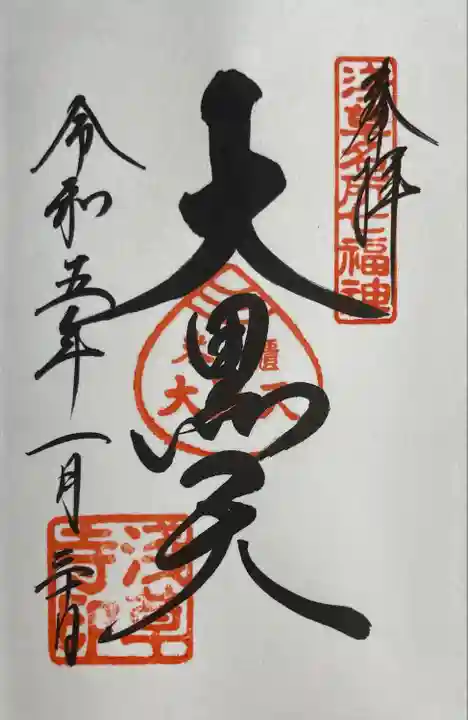 奉拝
浅草名所七福神
大黒天
米櫃
大天
令和五年一月三日
浅草寺印